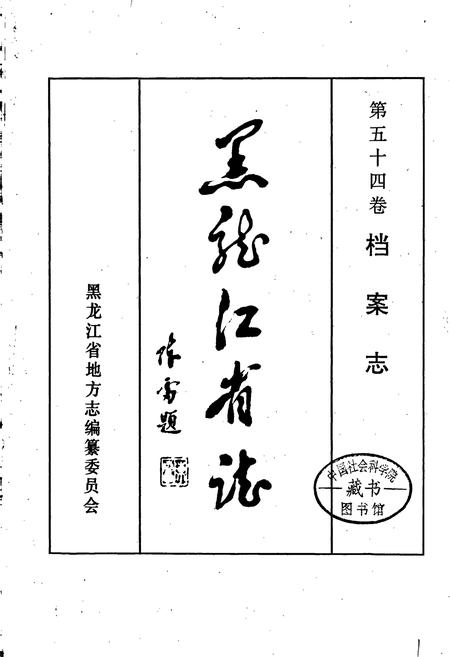 第五十四卷 档案志
黑龙江省志
陈雷题
黑龙江省地方志编纂委员会
中国社会科学院
藏书
图书馆